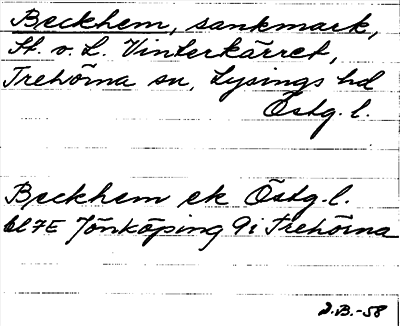 Beckhem, sankmark,
St. v. L. Vinterkärret,
Trehörna sn, Lysings hd
Östg. l.
Beckhem ek Östg. l.
bl 7E Jönköping 9i Trehörna
J.B.-58